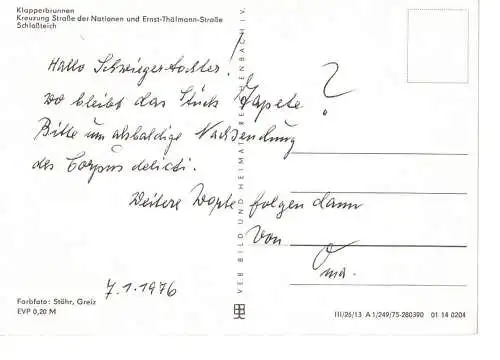 Klapperbrunnen
Kreuzung Straße der Nationen und Ernst-Thälmann-Straße
Schloßteich
Hallo Schwiegertochter!
wo bleibt das Stück Tapete?
Bitte um alsbaldige Nachsendung
des Corpus delicti.
Weitere Worte folgen dann
von Oma.
7.1.1976
Farbfoto: Stöhr, Greiz
EVP 0,20 M
VEB BILD UND HEIMAT REICHENBACH I. V.
III/26/13 A 1/249/75-280390 01 14 0204